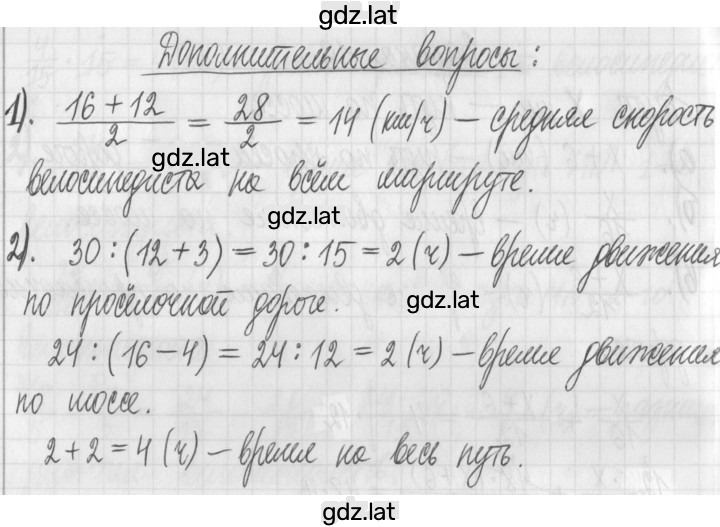 gdz.lat
Дополнительные вопросы:
1). (16 + 12)/2 = 28/2 = 14 (км/ч) – средняя скорость
gdz.lat
велосипедиста на всём маршруте.
gdz.lat
2). 30 : (12 + 3) = 30 : 15 = 2 (ч) – время движения
по просёлочной дороге.
gdz.lat
24 : (16 – 4) = 24 : 12 = 2 (ч) – время движения
по шоссе.
gdz.lat
2 + 2 = 4 (ч) – время на весь путь.
gdz.lat